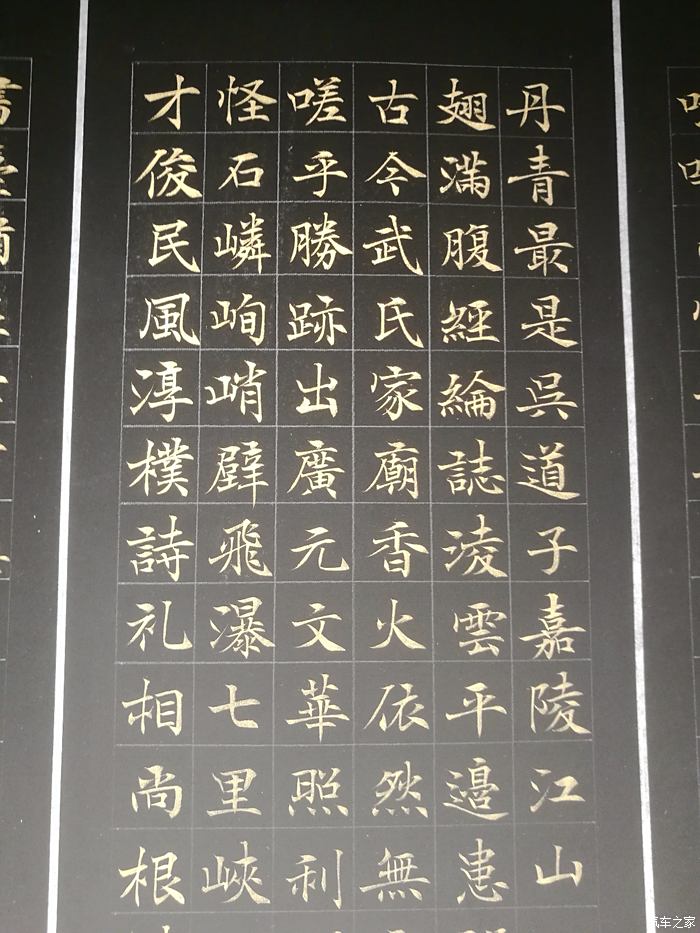 丹青最是吳道子嘉陵江山
翅滿腹經綸誌淩雲平邊患
古今武氏家廟香火依然無
嗟乎勝跡出廣元文華照利
怪石嶙峋峭壁飛瀑七里峽
才俊民風淳樸詩礼相尚根
汽车之家